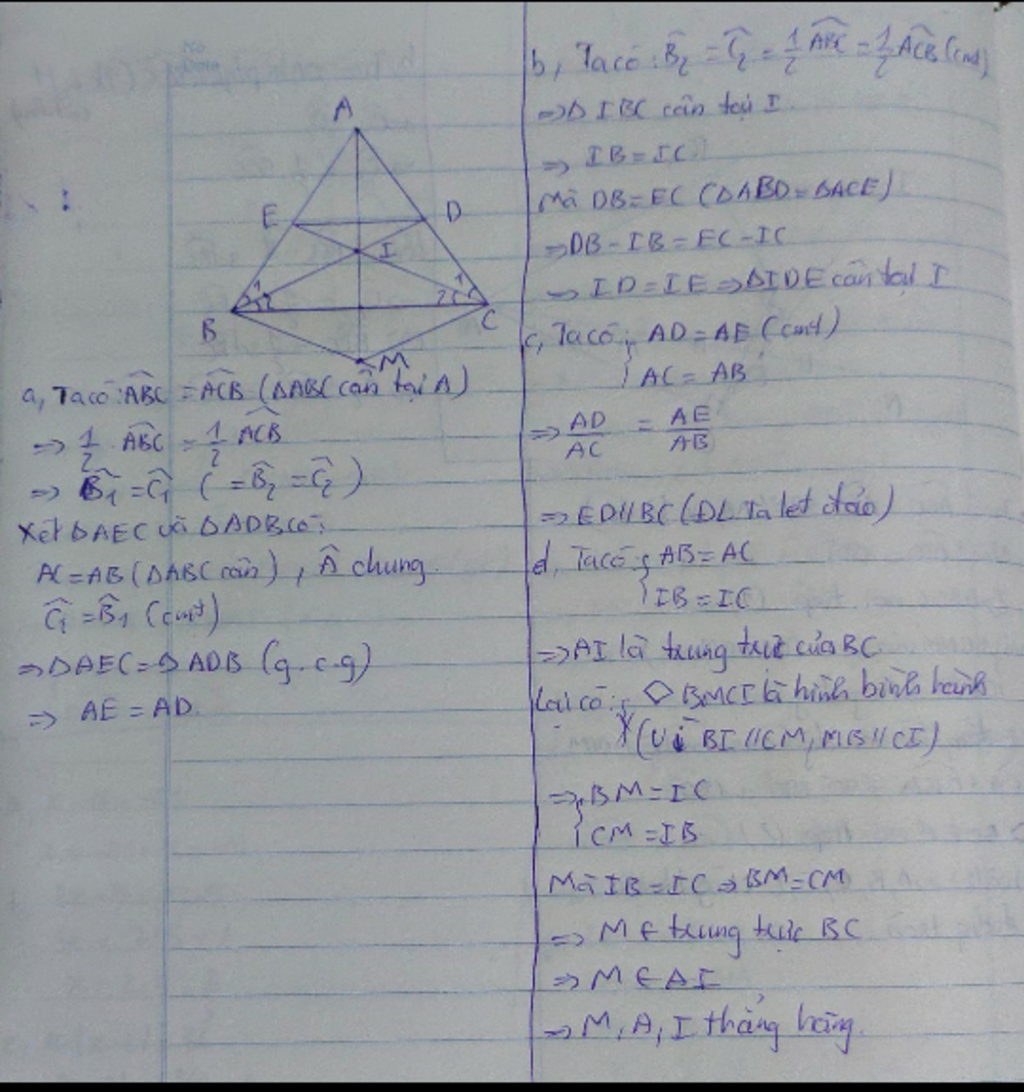 A
E
D
I
1
2
2
1
B
C
M
a, Ta có: ABC = ACB (ΔABC cân tại A)
=> 1/2 ABC = 1/2 ACB
=> B̂1 = Ĉ1 ( = B̂2 = Ĉ2 )
Xét ΔAEC và ΔADB có:
AC = AB (ΔABC cân) , Â chung
Ĉ1 = B̂1 (cmt)
=> ΔAEC = ΔADB (g.c.g)
=> AE = AD.
b, Ta có: B̂2 = Ĉ2 = 1/2 ABC = 1/2 ACB (cmt)
=> Δ IBC cân tại I
=> IB = IC
Mà DB = EC (ΔABD = ΔACE)
=> DB - IB = EC - IC
=> ID = IE => ΔIDE cân tại I
c, Ta có { AD = AE (cmt)
AC = AB
=> AD/AC = AE/AB
=> ED // BC (ĐL Ta let đảo)
d, Ta có { AB = AC
IB = IC
=> AI là trung trực của BC
Lại có: ◇ BMCI là hình bình hành
(Vì BI // CM, MB // CI)
=> { BM = IC
CM = IB
Mà IB = IC => BM = CM
=> M ∈ trung trực BC
=> M ∈ AI
=> M, A, I thẳng hàng.